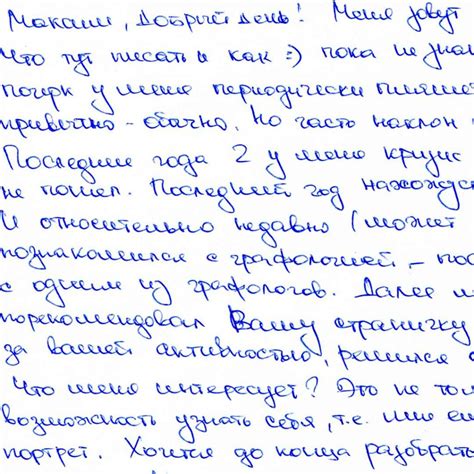 Максим, Добрый день! Меня зовут
Что тут писать и как :) пока не знаю
почерк у меня периодически пляшет
привычно - обычно, но часть наклон
Последние года 2 у меня кризис
не пошел. Последний год нахожус
И относительно недавно (может
познакомился с графологией, - пос
с одним из графологов. Далее
порекомендовал Вашу страничку
за вашей активностью, решился
Что меня интересует? Это не тол
возможность узнать себя, т.е. мне
портрет. Хочется до конца разобрать